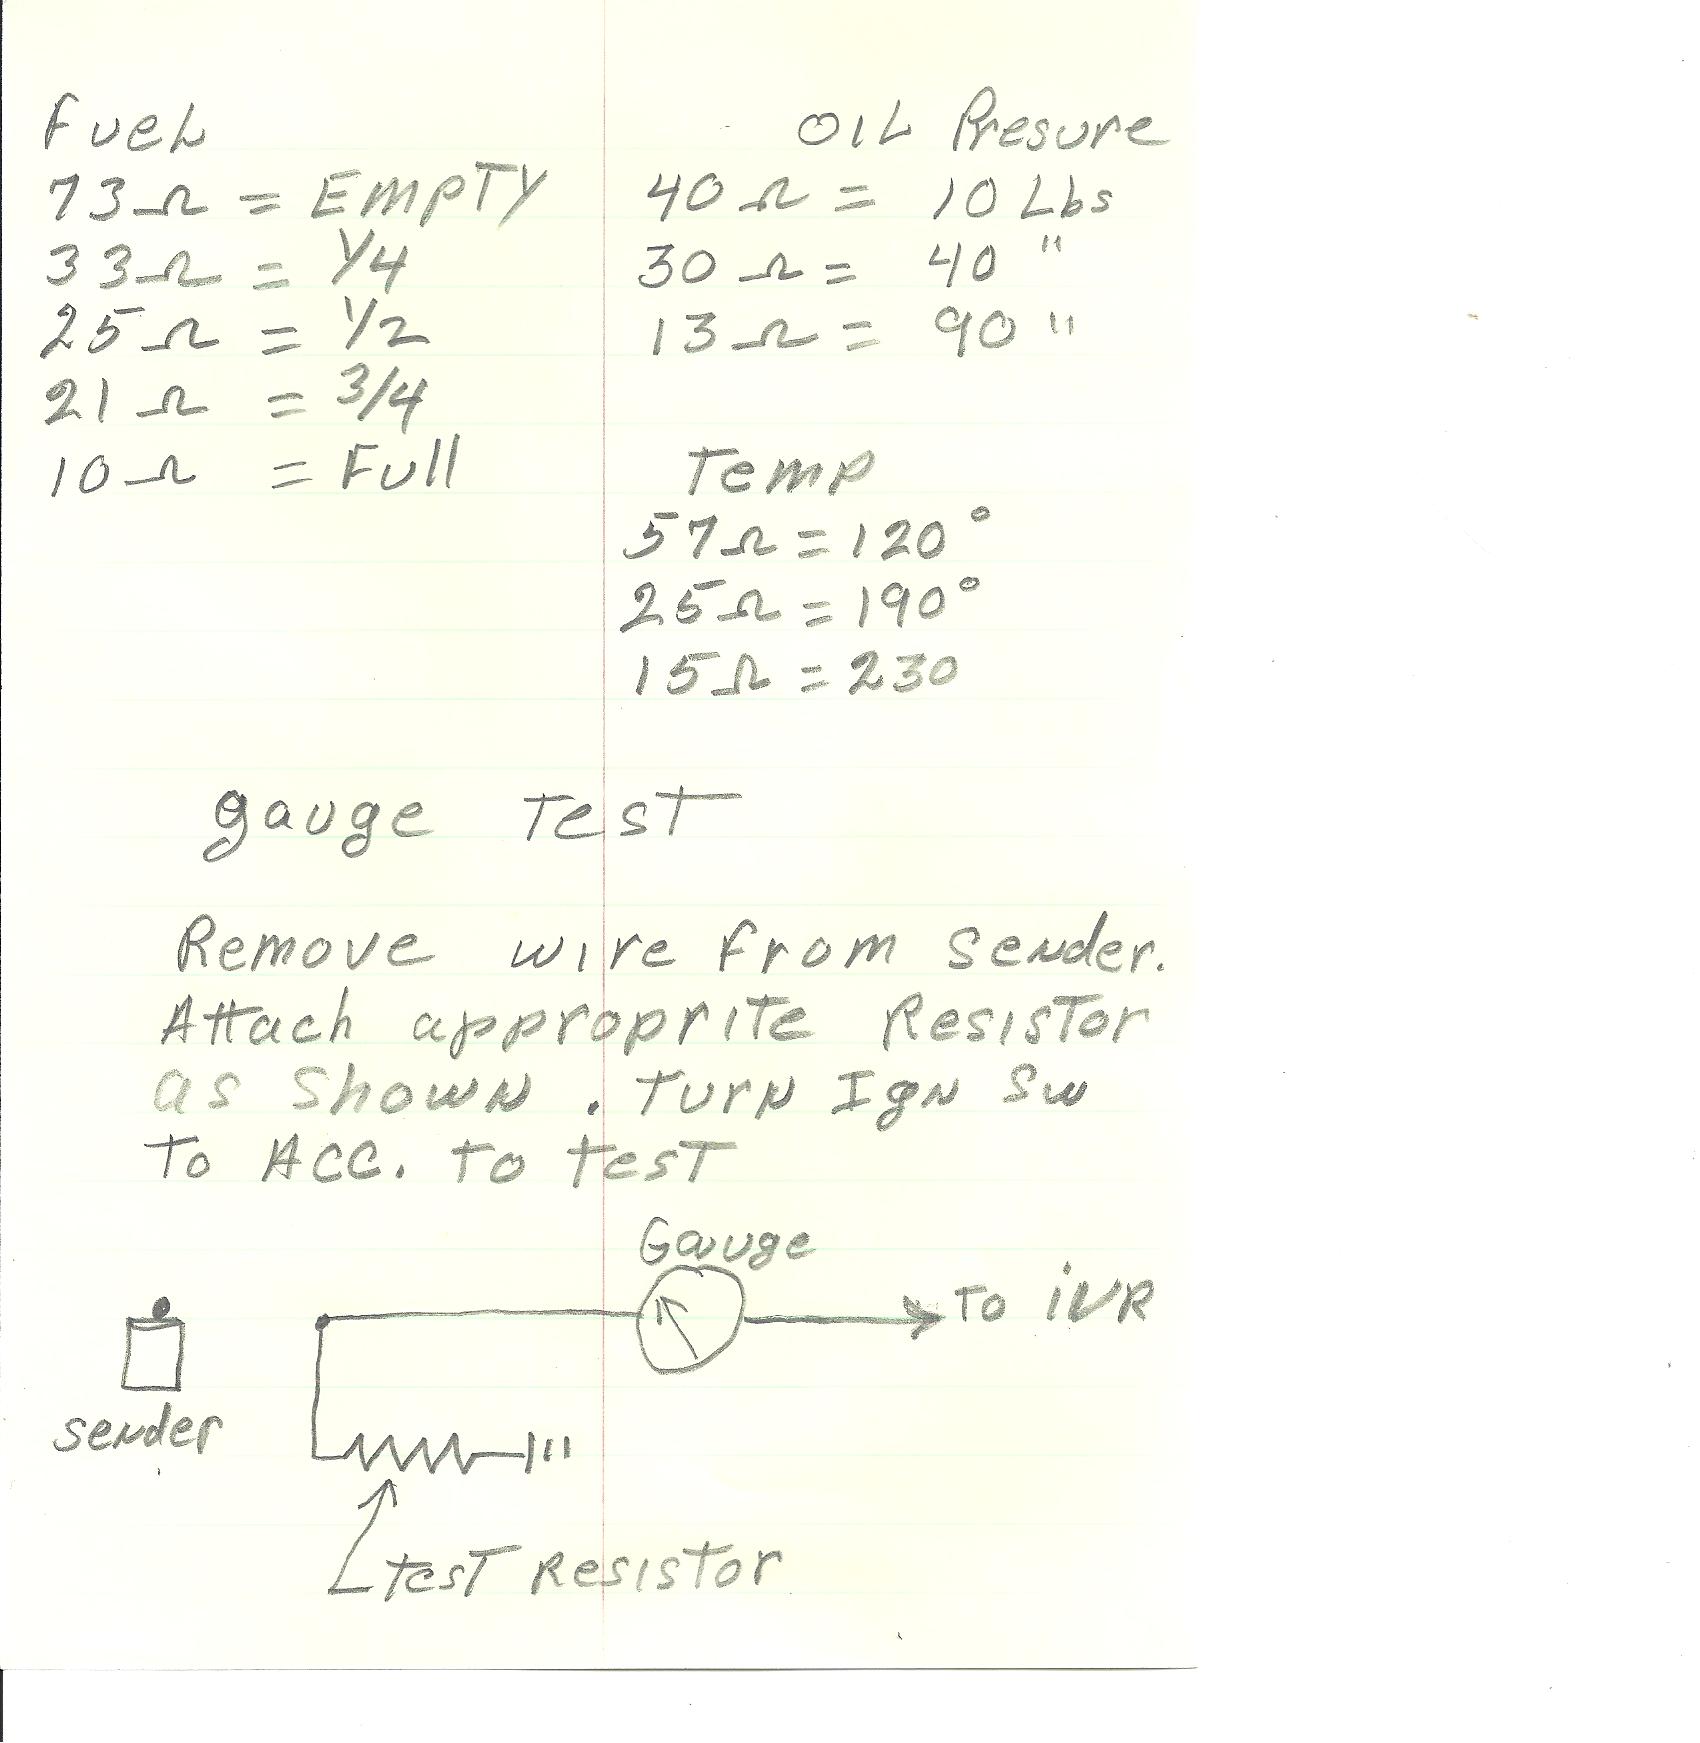 Fuel
73Ω = EMPTY
33Ω = 1/4
25Ω = 1/2
21Ω = 3/4
10Ω = Full
OIL Presure
40Ω = 10 Lbs
30Ω = 40 "
13Ω = 90 "
Temp
57Ω = 120°
25Ω = 190°
15Ω = 230
gauge Test
Remove wire from sender.
Attach approprite Resistor
as Shown. Turn Ign Sw
To ACC. to test
Gauge
To iVR
sender
test Resistor